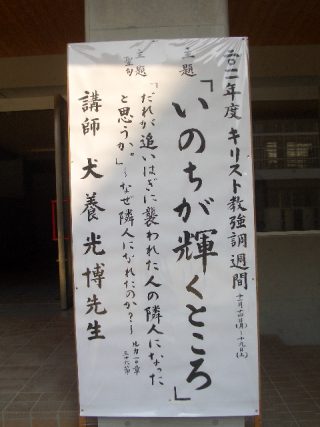 二〇一一年度 キリスト教強調週間 十一月十四日(月)~十九日(土)
主題
「いのちが輝くところ」
主題聖句
「だれが追いはぎに襲われた人の隣人になった
と思うか。」~なぜ隣人になれたのか?~ ルカ一〇章三十六節
講師 犬養光博先生